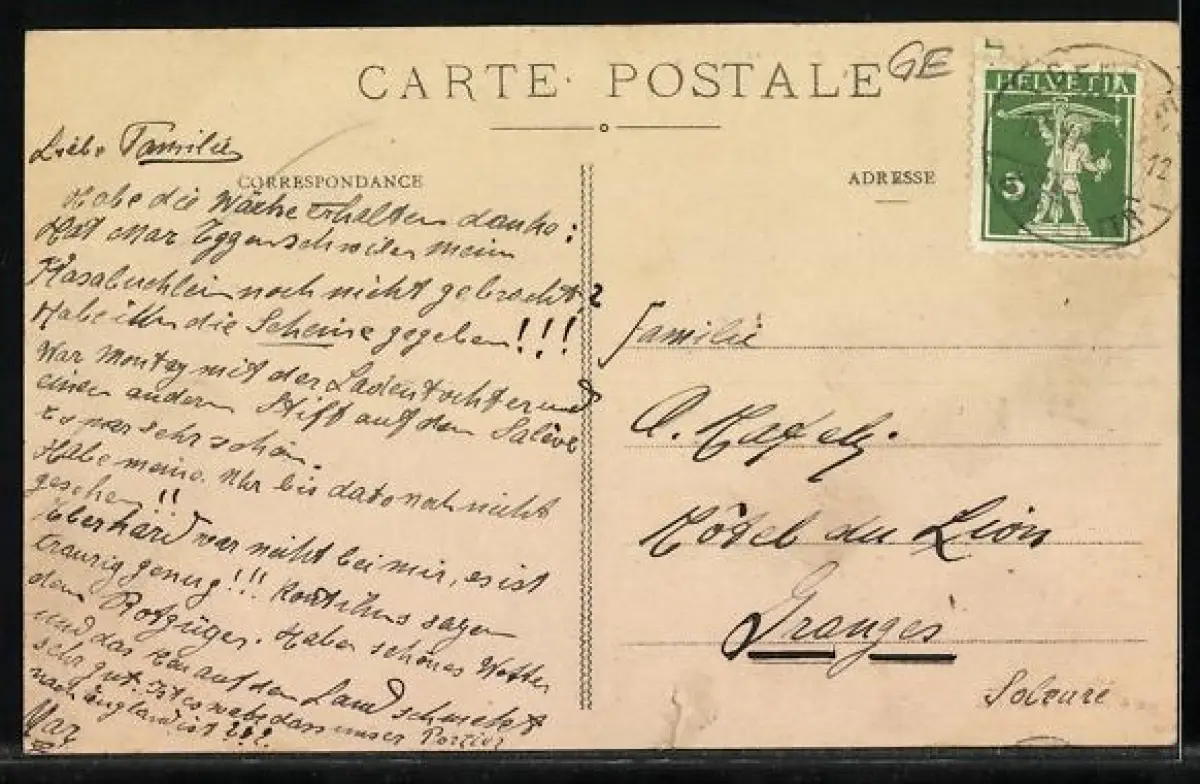 CARTE POSTALE
GE
HELVETIA
5
12
CORRESPONDANCE
ADRESSE
Liebe Familie
Habe die Wäche erhalten danke:
Hat Max Eggenschwiler mein
Kasabuchlein noch nicht gebracht?
Habe ihm die Scheine gegeben!!!
War Montag mit der Ladentochter und
einem andern Stift auf dem Salève
Es war sehr schön.
Habe meine Uhr bis dato noch nicht
gesehen!!
Eberhard war nicht bei mir, es ist
traurig genug!!! sagen
dem Rotzüger. Haben schönes Wetter
und das auf dem Land schmeckt
sehr gut. Ist es wahr dass unser Portier
nach England ist???
Max
Familie
A.
Hôtel du Lion
Granges
Soleure